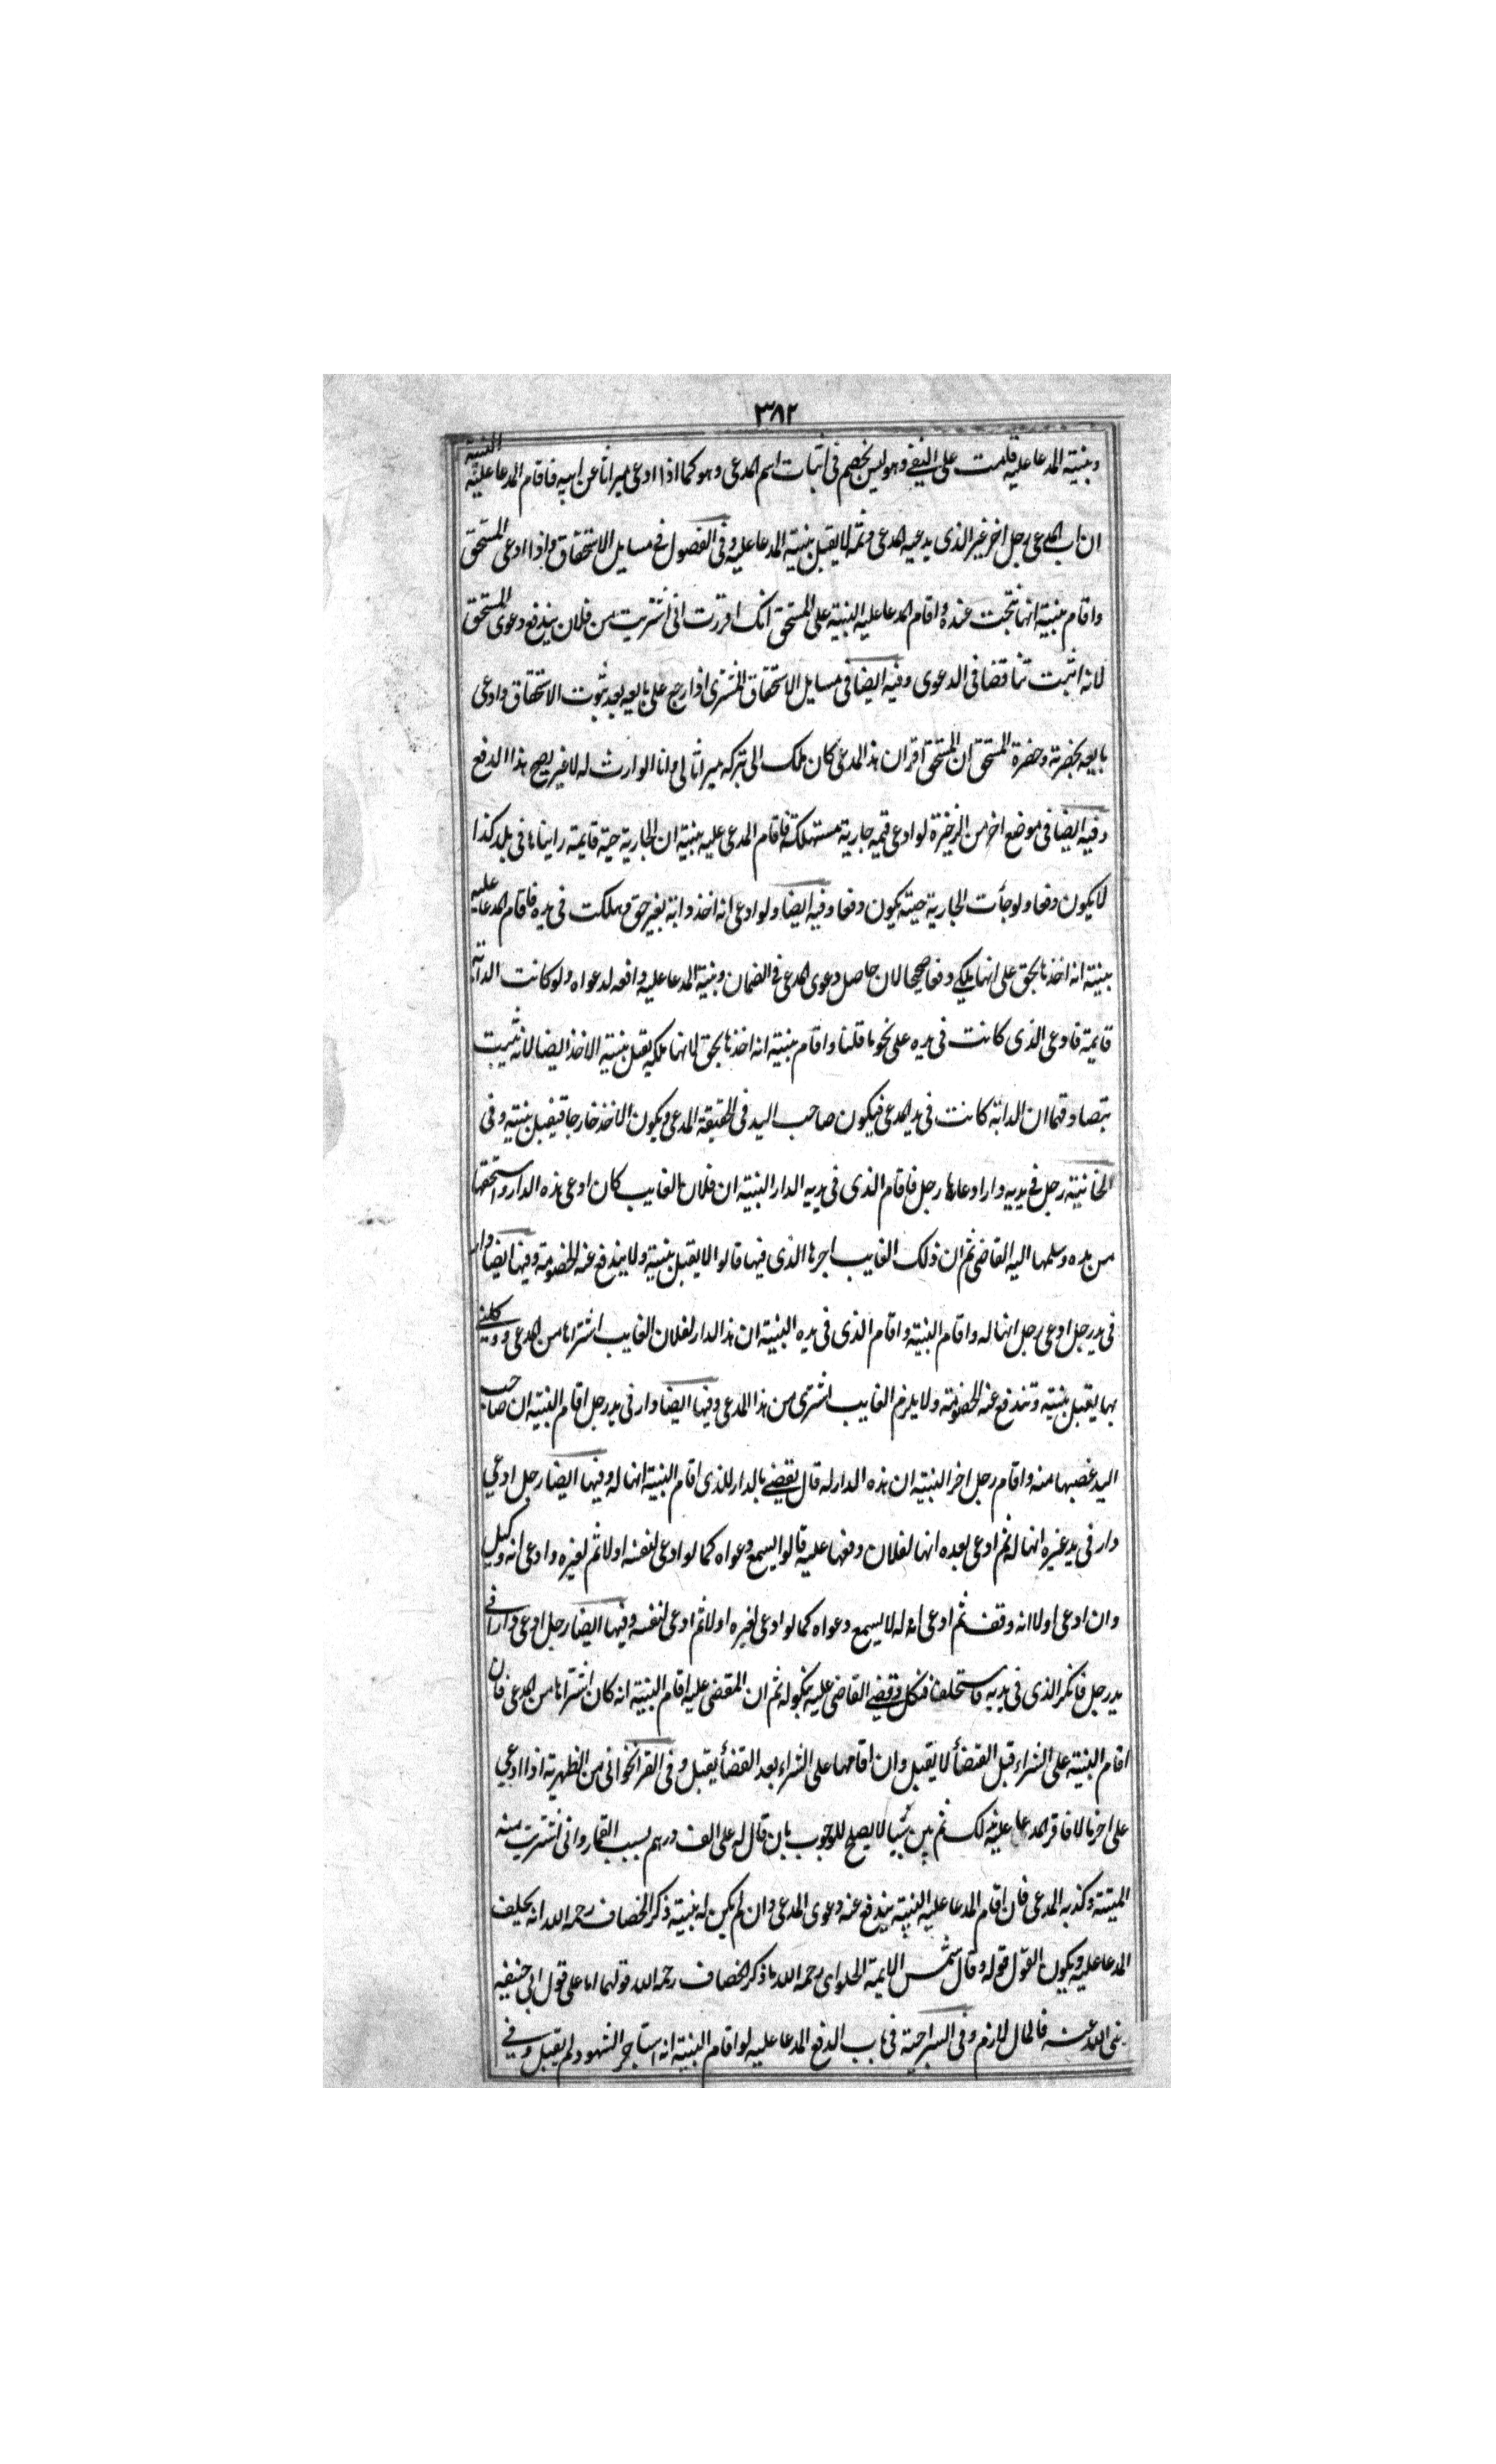 ٣٨٢
وبنية المدعا عليه قامت على النفي وهو ليس بخصم في اثبات اسم المدعى وهو كما اذا ادعى ميراثا عن ابيه فاقام المدعا عليه البنية
ان اب المدعى رجل اخر غير الذى يدعيه المدعى وثمه لا يقبل بنية المدعا عليه وفى الفصول فى مسايل الاستحقاق واذا ادعى المستحق
واقام بنية انها نتجت عنده واقام المدعا عليه البنية على المستحق انك اقررت انى اشتريت من فلان يندفع دعوى المستحق
لانه اثبت تناقضا فى الدعوى وفيه ايضا فى مسايل الاستحقاق المشترى اذا رجع على بايعه بعد ثبوت الاستحقاق وادعى
بايعه بحضرته وحضرة المستحق ان المستحق اقر ان هذا المدعى كان ملك ابى تركه ميراثا لى وانا الوارث له لا غير يصح هذا الدفع
وفيه ايضا فى موضع اخر من الذخيرة لو ادعى قيمه جارية مستهلكة فاقام المدعى عليه بنية ان الجارية حية قايمة رايناها فى بلد كذا
لا يكون دفعا ولو جأت الجارية حية يكون دفعا وفيه ايضا ولو ادعى انه اخذ دابة بغير حق وهلكت فى يده فاقام المدعا عليه
بينية انه اخذها بحق على انها ملكى دفعا صحيحا لان حاصل دعوى المدعى فى الضمان وبنية المدعا عليه دافعه لدعواه ولو كانت الدابة
قايمة فادعى الذى كانت فى يده على نحو ما قلنا واقام بنية انه اخذها بحق لانها ملكه يقبل بنية الاخذ ايضا لانه يثبت
بتصادقهما ان الدابة كانت فى يد المدعى فيكون صاحب اليد فى الحقيقة المدعى ويكون الاخذ خارجا فيقبل بنيته وفى
الخانية رجل فى يديه دار ادعاها رجل فاقام الذى فى يديه الدار البنية ان فلان الغايب كان ادعى هذه الدار واستحقها
من يده وسلمها اليه القاضى ثم ان ذلك الغايب اجرها الذى فيها قالوا لا يقبل بنيته ولا يندفع عنه الخصومة وفيها ايضا دار
فى يد رجل ادعى رجل انها له واقام البنية واقام الذى فى يده البنية ان هذا الدار لفلان الغايب اشتراها من المدعى ووكلنى
بها يقبل بنيته وتندفع عنه الخصومة ولا يلزم الغايب اشترى من هذا المدعى وفيها ايضا دار فى يد رجل اقام البنية ان صاحب
اليد غصبها منه واقام رجل اخر البنية ان هذه الدار له قال يقضى بالدار للذى اقام البنية انها له وفيها ايضا رجل ادعى
دار فى يد غيره انها له ثم ادعى بعده انها لفلان وقفها عليه قالوا يسمع دعواه كما لو ادعى لنفسه اولا ثم لغيره وادعى انه وكيل
وان ادعى اولا انه وقف ثم ادعى انه له لا يسمع دعواه كما لو ادعى لغيره اولا ثم ادعى لنفسه وفيها ايضا رجل ادعى دارا فى
يد رجل فانكر الذى فى يديه فاستحلفنا فنكل وقضى القاضى عليه بنكوله ثم ان المقضى عليه اقام البنية انه كان اشتراها من المدعى فان
اقام البنية على الشراء قبل القضأ لا يقبل وان اقامها على الشراء بعد القضأ يقبل وفى القراخوانى من الظهيرية اذا ادعى
على اخر مالا فاقر المدعا عليه بذلك ثم بين شيا لا يصلح للوجوب بان قال له على الف درهم بسبب القمار وانى اشتريت منه
الميتة وكذبه المدعى فان اقام المدعا عليه البنية يندفع عنه دعوى المدعى وان لم يكن له بنية ذكر الخصاف رحمه الله انه يحلف
المدعا عليه ويكون القول قوله وقال شمس الايمة الحلواى رحمه الله ما ذكر الخصاف رحمه الله قولهما اما على قول ابى حنيفه
رضى الله عنه فالمال لازم وفى السراجية فى باب الدفع المدعا عليه لو اقام البنية انه استاجر الشهود لم يقبل وفى